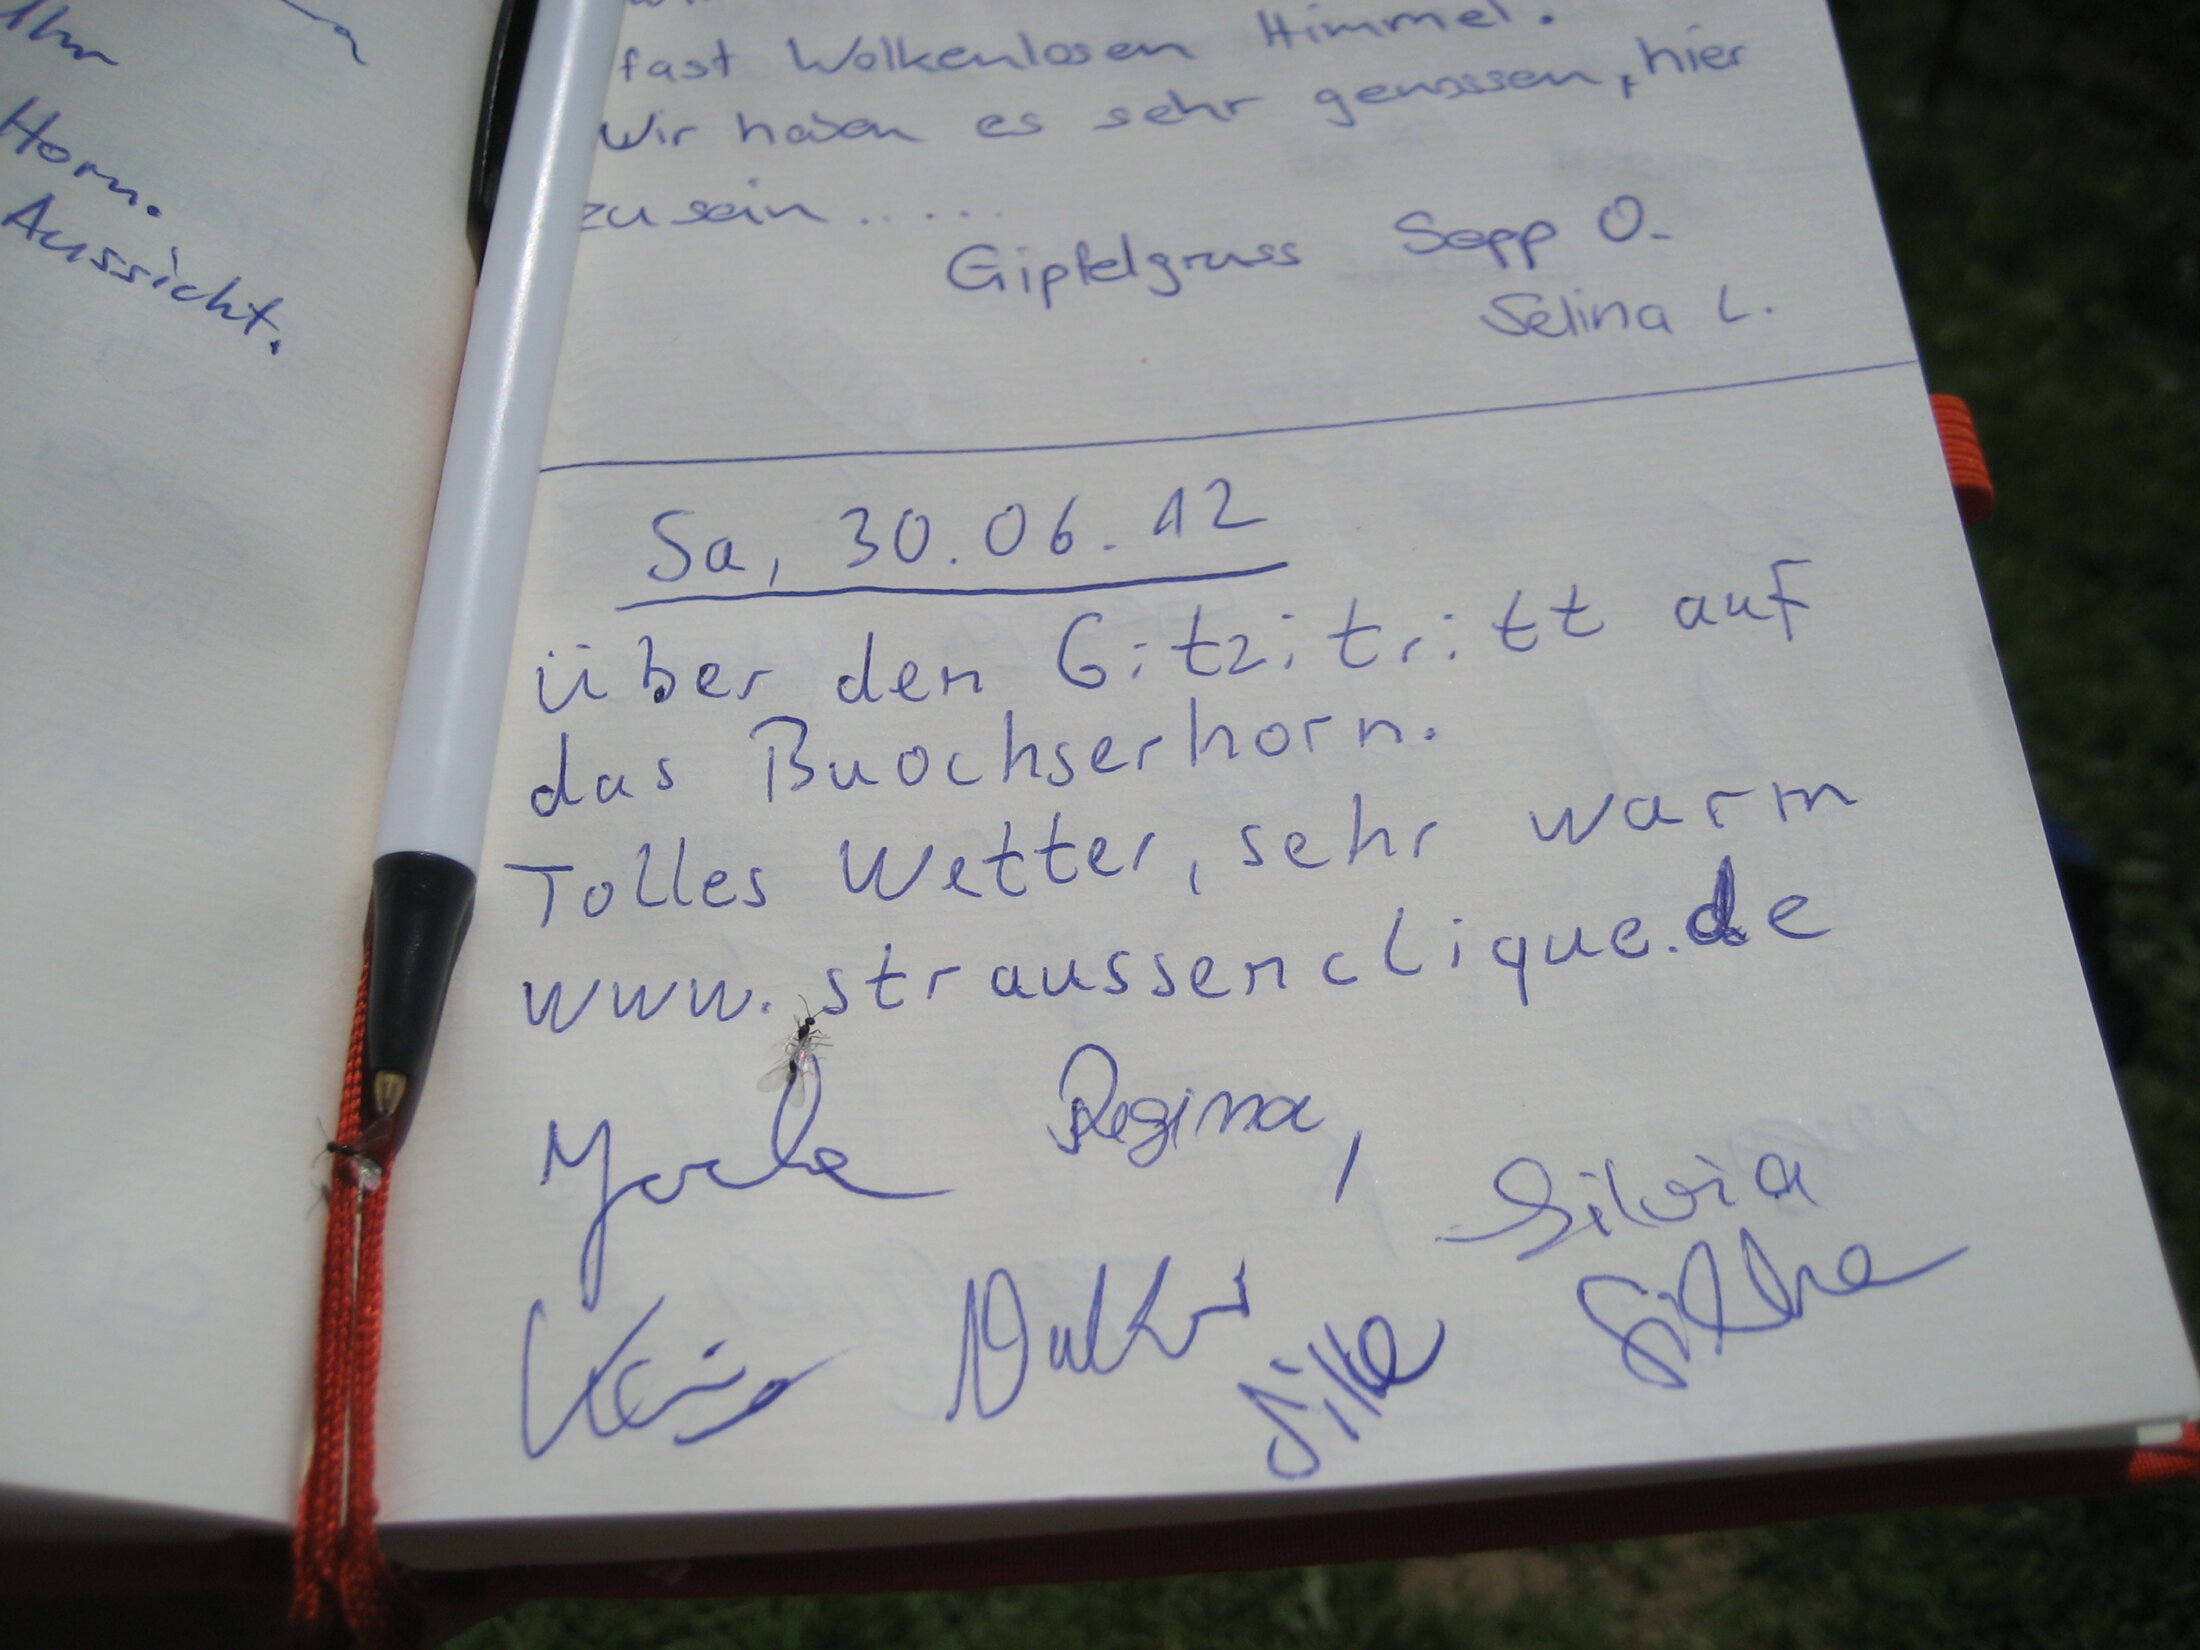 Uhr
Horn.
Aussicht.
fast Wolkenlosen Himmel.
Wir haben es sehr genossen, hier
zu sein......
Gipfelgruss Sepp O.
Selina L.
Sa, 30.06.12
über den Gitzitritt auf
das Buochserhorn.
Tolles Wetter, sehr warm
www.straussenclique.de
Regina,
Silvia
Silke
Silke